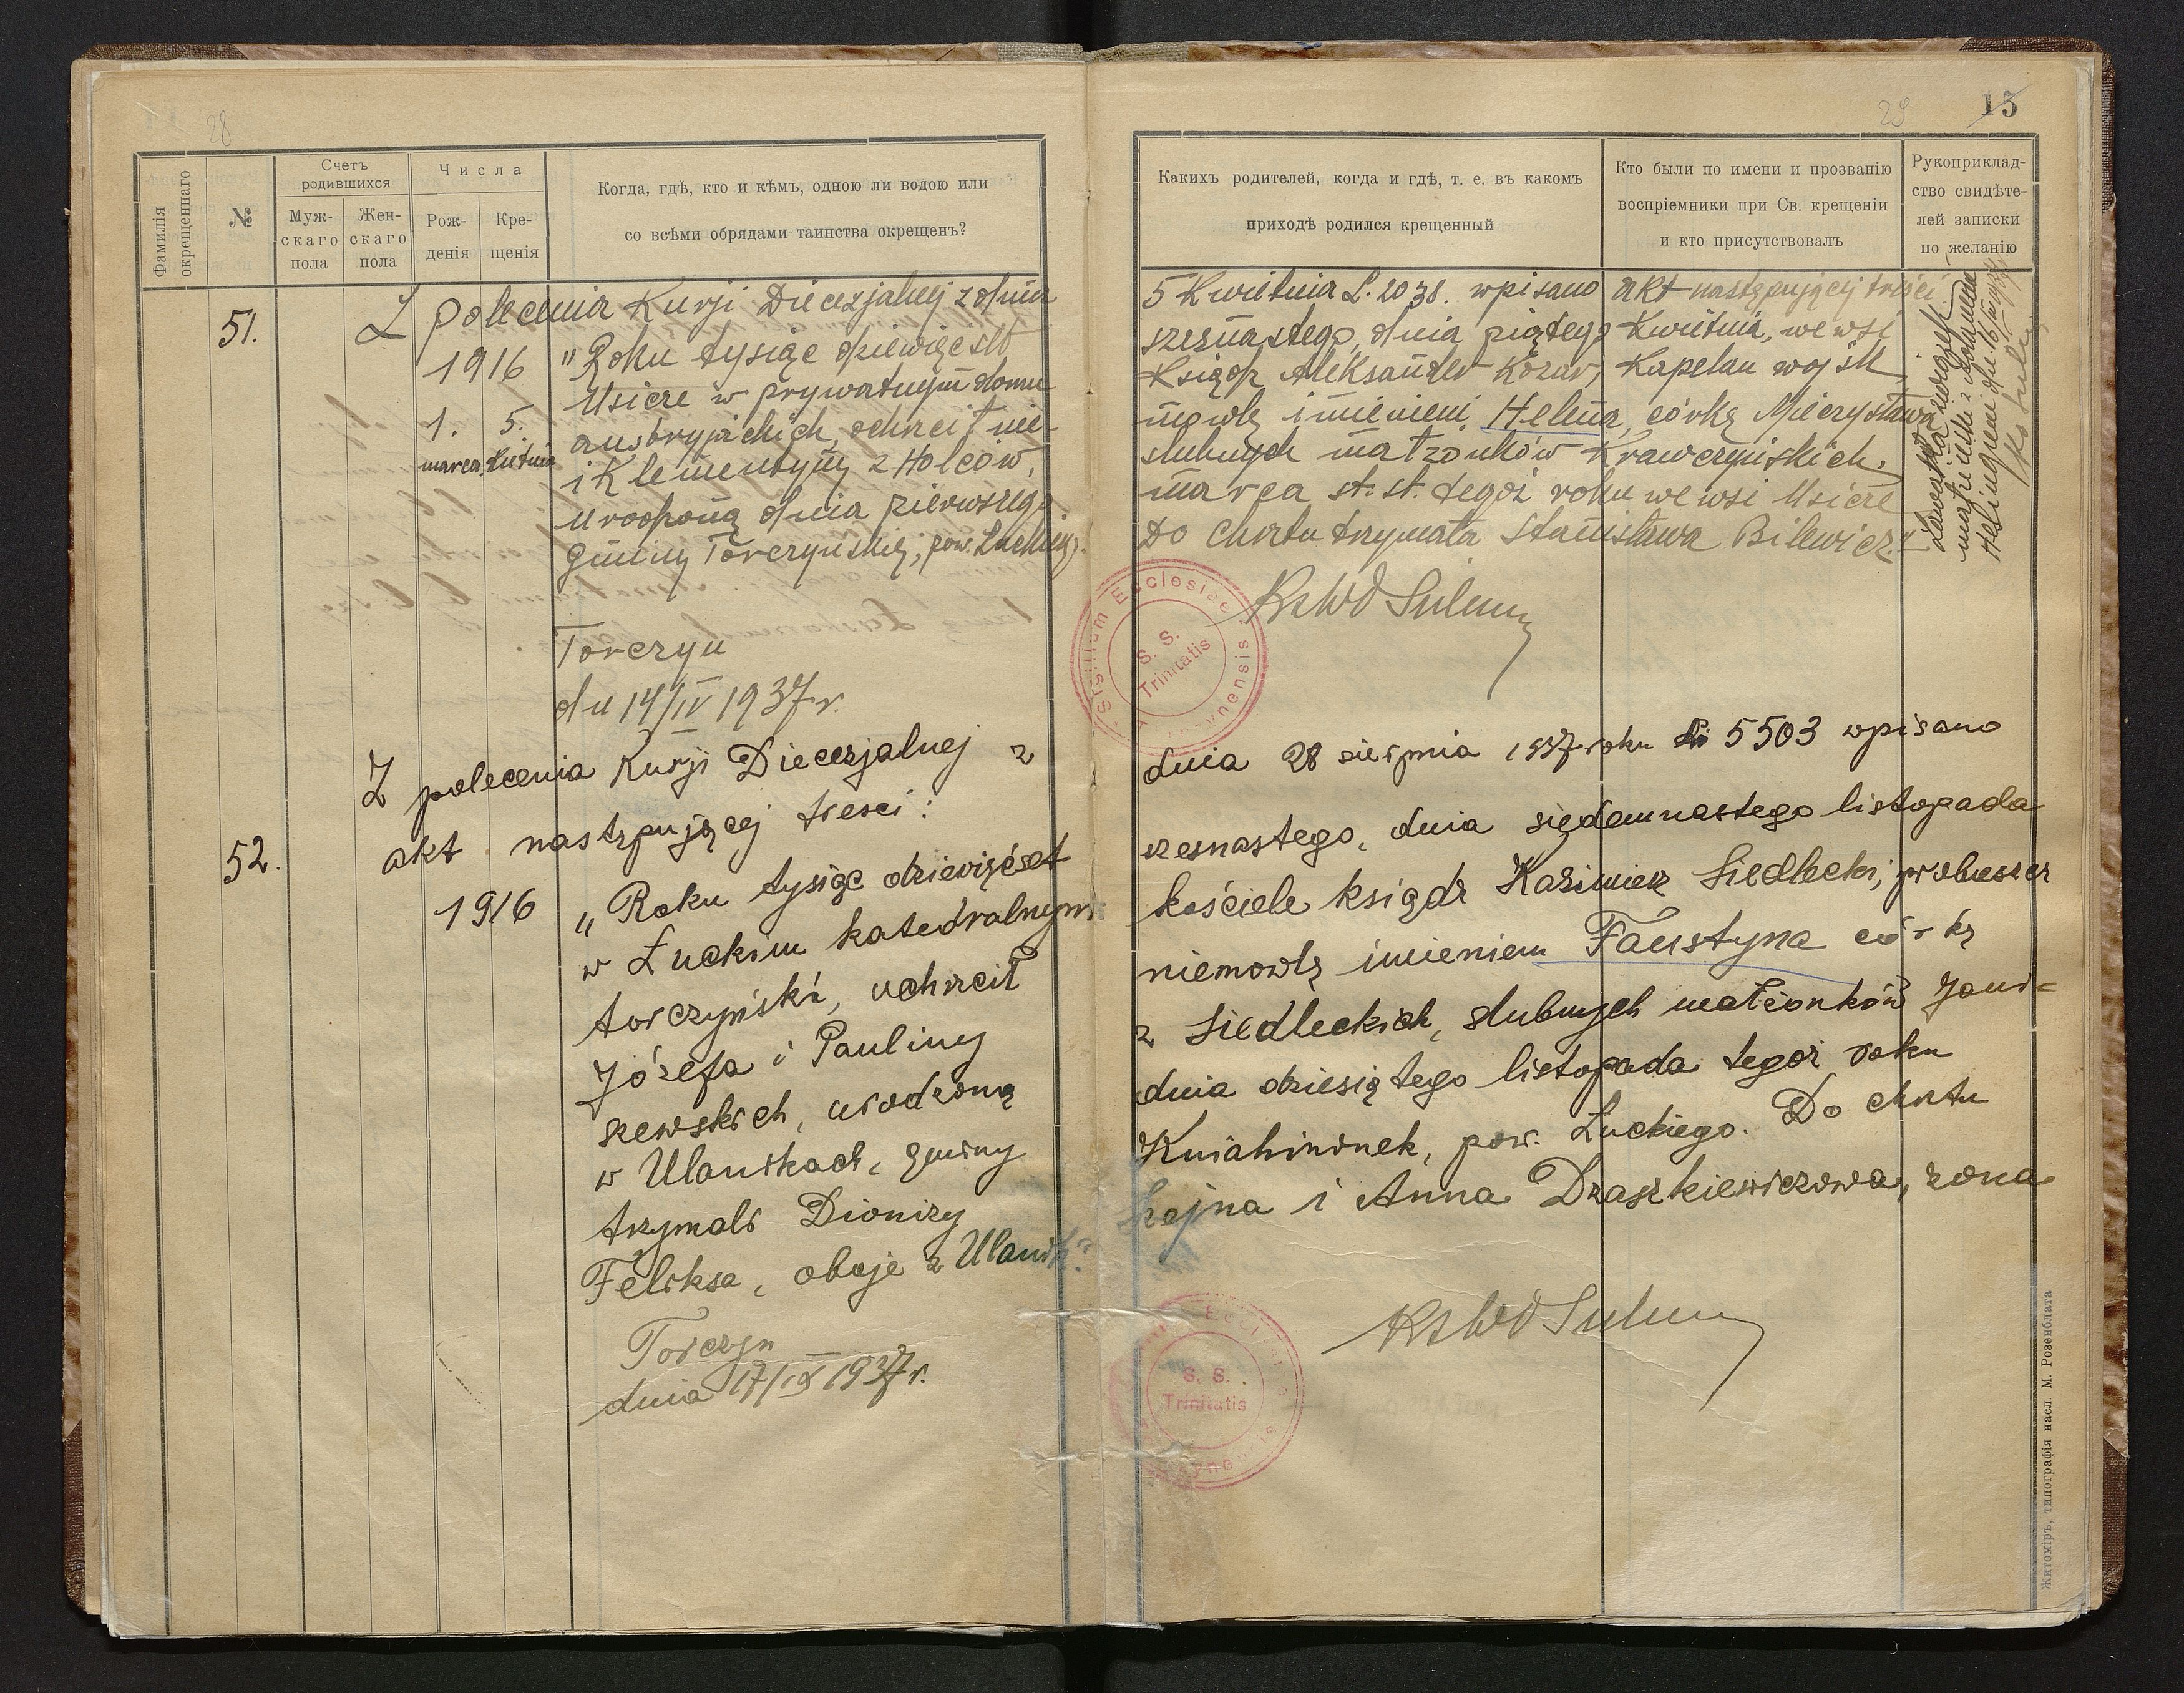 28
29 15
Фамилія окрещеннаго
№
Счетъ родившихся
Муж-скаго пола
Жен-скаго пола
Числа
Рож-денія
Кре-щенія
Когда, гдѣ, кто и кѣмъ, одною ли водою или
со всѣми обрядами таинства окрещенъ?
Какихъ родителей, когда и гдѣ, т. е. въ какомъ
приходѣ родился крещенный
Кто были по имени и прозванію
воспріемники при Св. крещеніи
и кто присутствовалъ
Рукоприклад-
ство свидѣте-
лей записки
по желанію
51.
Z polecenia Kurji Diecezjalnej z dnia 5 Kwietnia L. 2038. wpisano akt następującej treści
1916 "Roku tysiąc dziewięćset szesnastego, dnia piątego Kwietnia, we wsi
Usicze w prywatnym domu Ksiądz Aleksander Kozar, Kapelan wojsk
1. marca 5. Kwietnia
austryjackich, ochrcił nie- mowlę imieniem Helena, córkę Mieczysława
i Klementyny z Holców, ślubnych małżonków Krawczyńskich,
urodzoną dnia pierwszego marca st. st. tegoż roku we wsi Usicze
Gminy Torczyńskiej, pow. Łuckiego. Do chrztu trzymała Stanisława Bilewicz."
Torczyn
dn 14/IV 1937 r.
Ks Wł Sulma
Sigillum Ecclesiae
S. S.
Trinitatis
52.
Z polecenia Kurji Diecezjalnej z dnia 28 sierpnia 1937 roku № 5503 wpisano
akt następującej treści:
1916 "Roku tysiąc dziewięćset szesnastego, dnia siedemnastego listopada
w Łuckim katedralnym kościele ksiądz Kazimierz Siedlecki, proboszcz
torczyński, ochrzcił niemowlę imieniem Faustyna córkę
Józefa i Pauliny z Siedleckich, ślubnych małżonków Jani-
szewskich, urodzoną dnia dziesiątego listopada tegoż roku
w Ulanikach, gminy Kniahininek, pow. Łuckiego. Do chrztu
trzymali Dionizy Szejna i Anna Draszkiewiczowa, żona
Feliksa, oboje z Ulanik."
Torczyn
dnia 17/IX 1937 r.
Ks Wł Sulma
S. S.
Trinitatis
Житоміръ, типографія насл. М. Розенблата